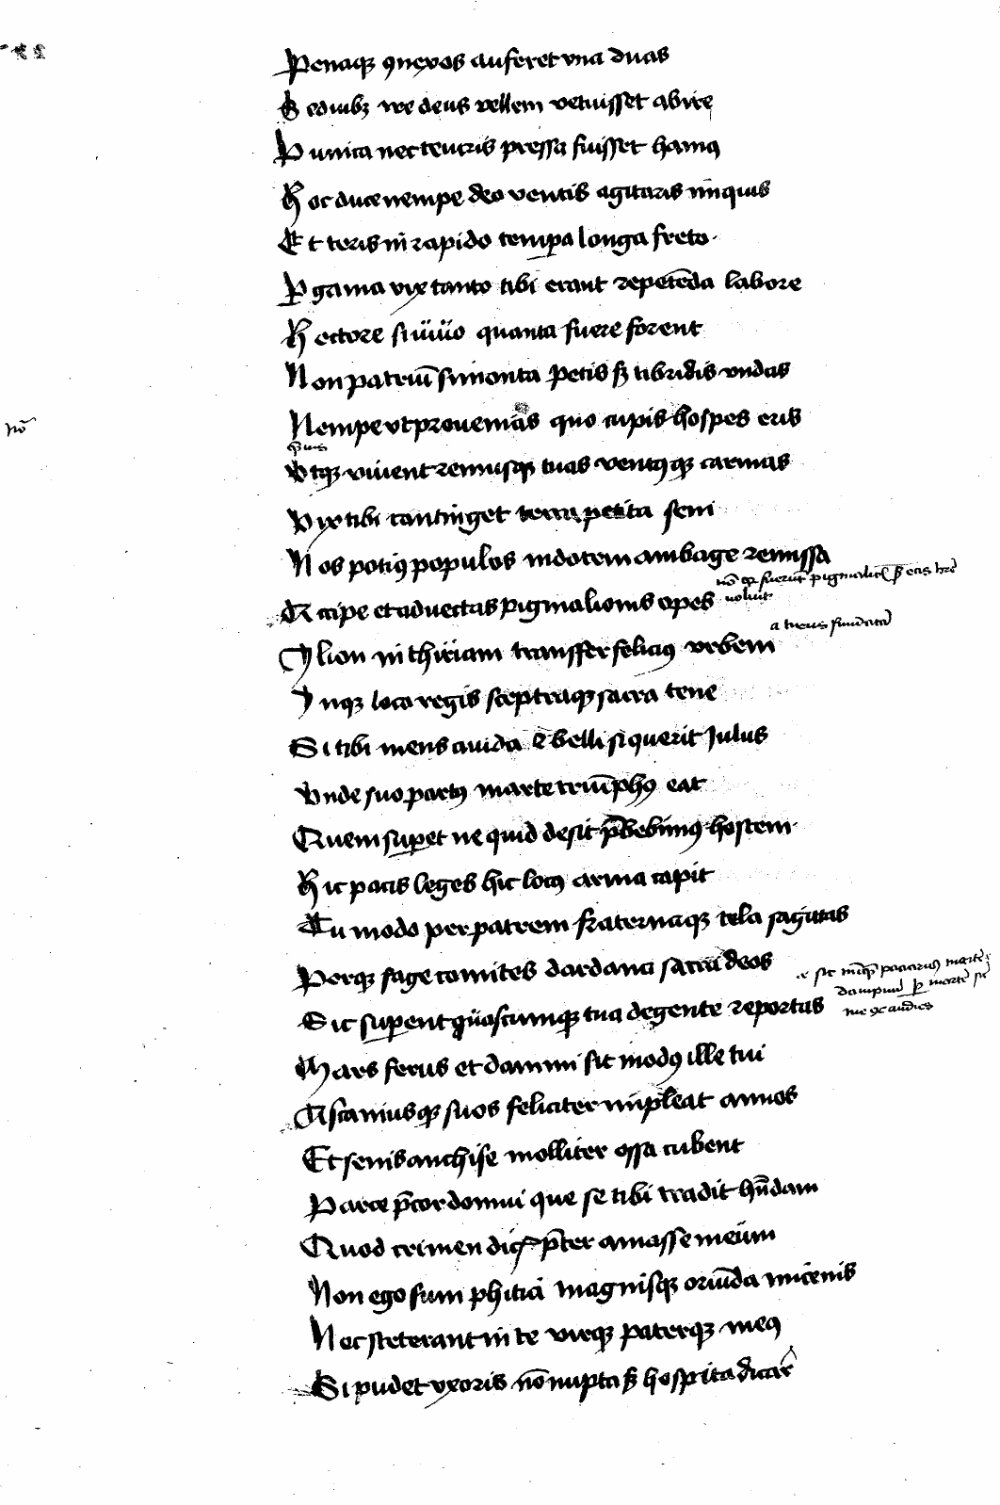 Penaqꝫ ꝯnexos auferet vna duas
Sꝫ iubꝫ ire deus vellem vetuisset abire
Punica nec teucris pressa fuisset hamꝰ
Hoc duce nempe deo ventis agitaris iniquis
Et teris in rapido tempa longa freto
Pgama vix tanto tibi erant repetēda labore
Hectore si uiuo quanta fuere forent
Non patriū simonta petis sꝫ tibridis vndas
nō
Nempe vt prouenias quo cupis hospes eris
Utqꝫ viuent remusqꝫ tuas ventꝰqꝫ carinas
Vix tibi continget terra petita seni
Nos potiꝰ populos in dotem ambage remissa
Accipe et aduectas pigmalionis opes
noluit
Ylion in thiriam transffer feliciꝰ vrbem
Inqꝫ loco regis sceptraqꝫ sacra tene
Si tibi mens auida ē belli si querit Julus
Unde suo partꝰ marte triūphꝰ eat
Quem supet ne quid desit p̄bebimꝰ hostem
Hic pacis leges hic locꝰ arma capit
Tu modo per patrem fraternaqꝫ tela sagittas
Perqꝫ fuge comites dardana sacra deos
Sic supent quoscumqꝫ tua de gente reportas
Mars ferus et damni sit modꝰ ille tui
Ascaniusqꝫ suos feliciter impleat annos
Et senis anchise molliter ossa cubent
Parce p̄cor domui que se tibi tradit hn̄dam
Quod crimen dicꝭ p̄ter amasse meum
Non ego sum phitia magnisqꝫ oriūda micenis
Nec steterant in te virqꝫ paterqꝫ meꝰ
Si pudet vxoris nō nupta sꝫ hospita dicar